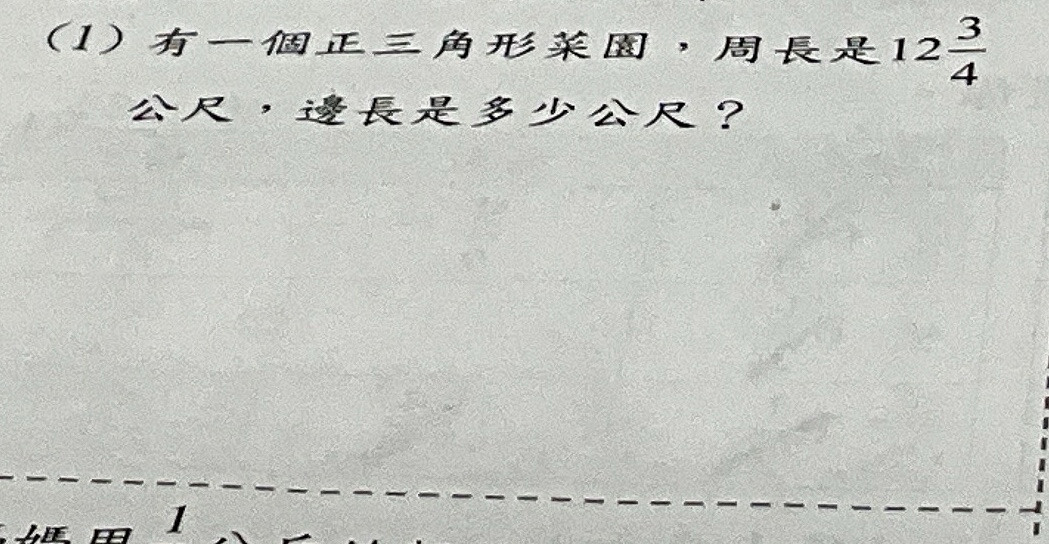 (1) 有一個正三角形菜園，周長是12 3/4
公尺，邊長是多少公尺？
媽用 1